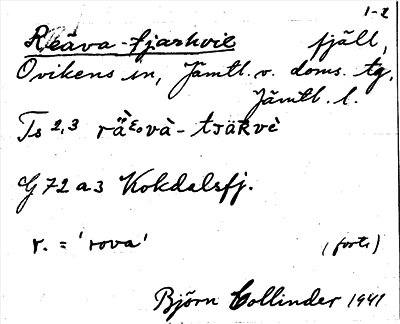 1-2
Reäva-fjarhvie fjäll,
Ovikens sn, Jämtl. v. doms. tg,
Jämtl. l.
Ts 2,3 rä̀ᵋₒvà-tᴊäʀvè
G 72 a 3 Kokdalsfj.
r. = 'rova' (forts)
Björn Collinder 1941